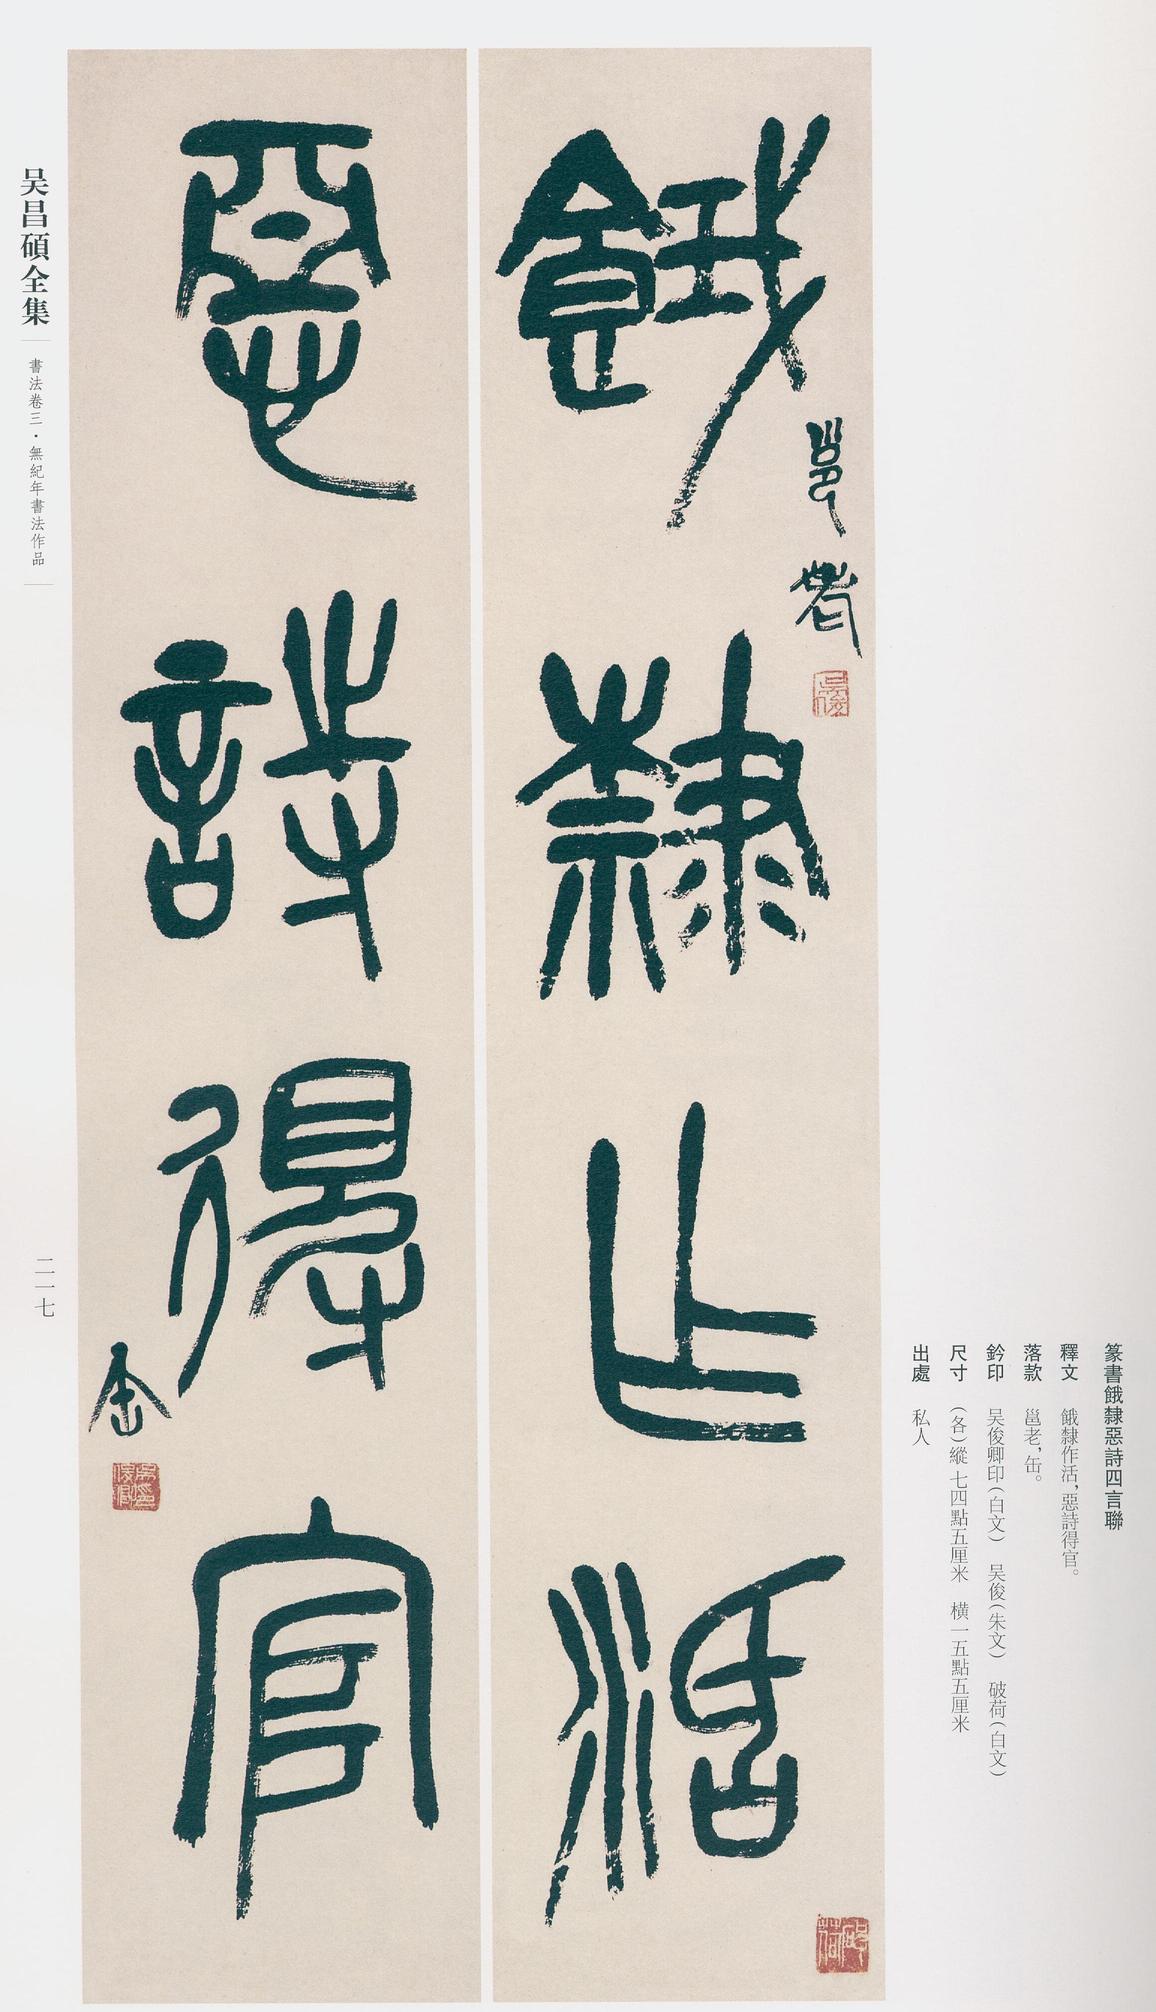 餓隸作活
邕老
惡詩得官
缶
篆書餓隸惡詩四言聯
釋文 餓隸作活，惡詩得官。
落款 邕老，缶。
鈐印 吴俊卿印（白文） 吴俊（朱文） 破荷（白文）
尺寸 （各）縱七四點五厘米 橫一五點五厘米
出處 私人
吴昌碩全集
書法卷三·無紀年書法作品
二一七
吴俊
吴俊卿印
破荷